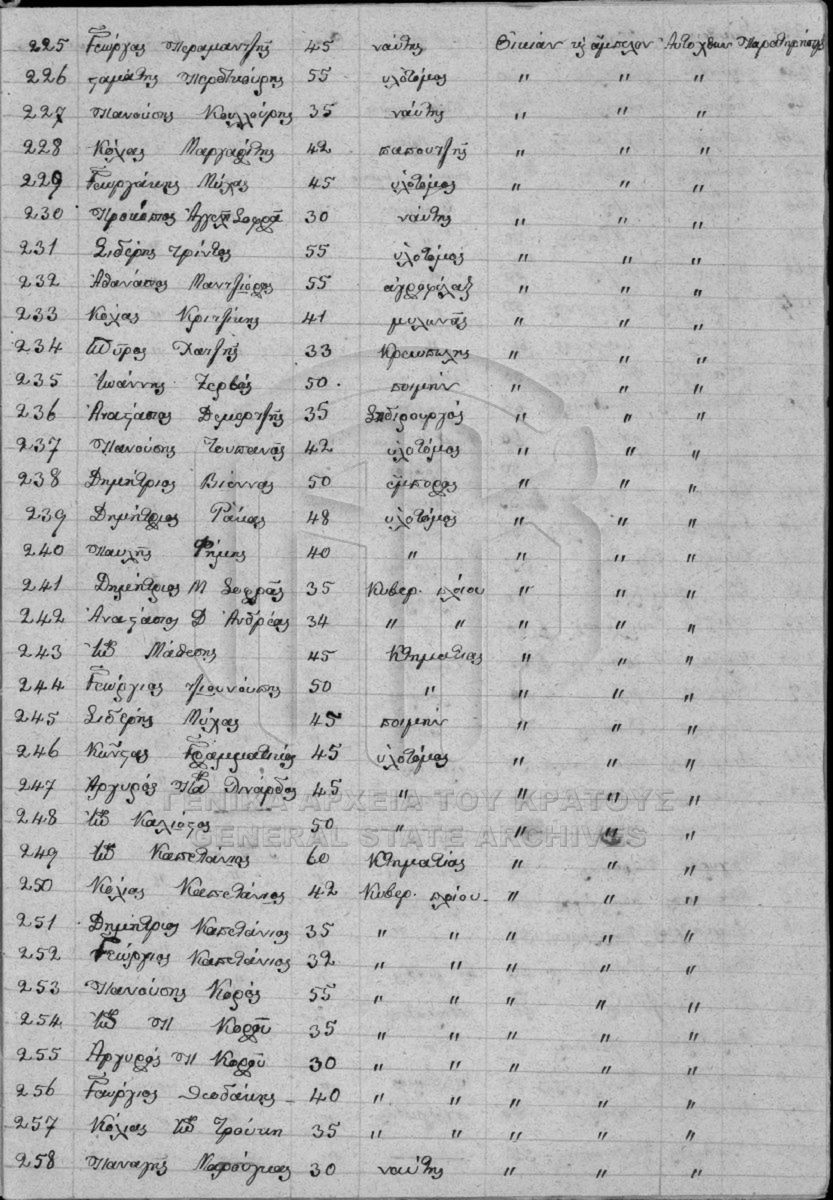 225 Γεώργας Περαμαντζής 45 ναύτης Οικίαν κ̀ ἄμπελον Αὐτόχθων Παρατηρήσεις
226 ϛαμάτης 55 υλοτόμος " " "
227 Πανούσης Κουλλούρης 35 ναύτης " " "
228 Κόλιας Μαργαρίτης 42 παπουτζῆς " " "
229 Γεωργάκης Μίχας 45 ὑλοτόμος " " "
230 Προκόπιος Ἀγγελῆ Σοφρᾶ 30 ναύτης " " "
231 Σιδέρης τρίντος 55 ὑλοτόμος " " "
232 Ἀθανάσιος Μαντζιόρος 55 ἀγροφύλαξ " " "
233 Κόλιας Κριτζίκης 41 μυλωνᾶς " " "
234 Σπῦρος Χατζῆς 33 Κρεωπώλης " " "
235 Ἰωάννης Ζερβός 50 ποιμήν " " "
236 Ἀναϛάσιος Δεμερτζῆς 35 Σιδιρουργός " " "
237 Πανούσης τουπανᾶς 42 ὑλοτόμος " " "
238 Δημήτριος Βιέννας 50 ἔμπορος " " "
239 Δημήτριος Ράκας 48 ὑλοτόμος " " "
240 Παυλῆς Φήμης 40 " " " "
241 Δημήτριος Μ Σοφρᾶς 35 Κυβερ. πλοίου " " "
242 Ἀναϛάσιος Δ Ἀνδρέας 34 " " " " "
243 Ἰω Μάθεσης 45 Κτηματίας " " "
244 Γεώργιος τζιουνούσης 50 " " " "
245 Σιδέρης Μίχας 45 ποιμήν " " "
246 Κώνϛας Γραμματικός 45 ὑλοτόμος " " "
247 Ἀργυρός Λινάρδος 45 " " " "
248 Ἰω Καλιότζος 50 " " " "
249 Ἰω Καπετάνιος 60 Κτηματίας " " "
250 Κόλιας Καπετάνιος 42 Κυβερ. πλοίου " " "
251 Δημήτριος Καπετάνιος 35 " " " " "
252 Γεώργιος Καπετάνιος 32 " " " " "
253 Πανούσης Κορός 55 " " " " "
254 Ἰω Π Κοροῦ 35 " " " " "
255 Ἀργυρός Π Κοροῦ 30 " " " " "
256 Γεώργιος Θεοδάκης 40 " " " " "
257 Κόλιας Ἰω Τρούκη 35 " " " " "
258 Παναγῆς Μαρσόγκας 30 ναύτης " " "
ΓΕΝΙΚΑ ΑΡΧΕΙΑ ΤΟΥ ΚΡΑΤΟΥΣ
GENERAL STATE ARCHIVES